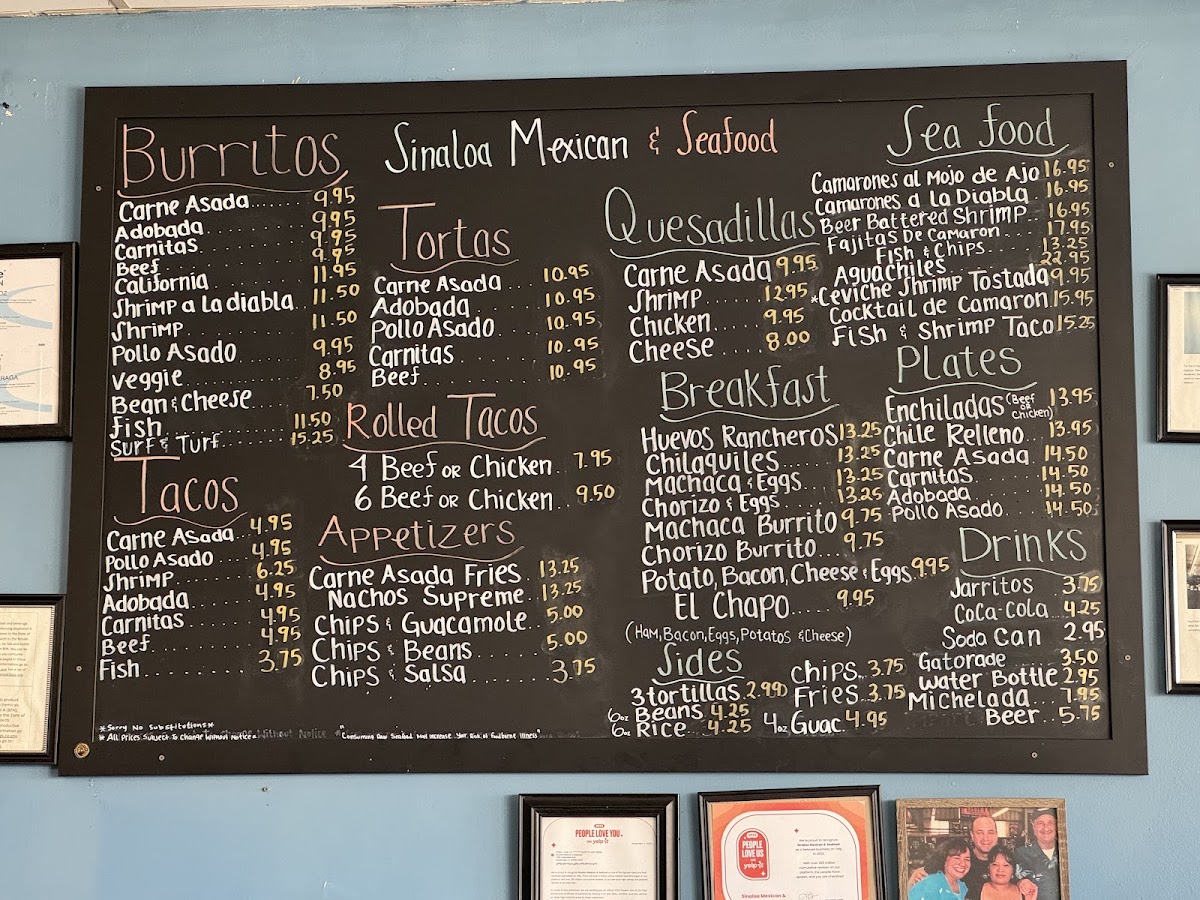 Sinaloa Mexican & Seafood
Burritos
Carne Asada...... 9.95
Adobada 9.95
Carnitas 9.95
Beef 9.95
California 11.95
Shrimp a La diabla 11.50
Shrimp 11.50
Pollo Asado 9.95
Veggie 8.95
Bean & Cheese 7.50
fish 11.50
Surf & Turf 15.25
Tacos
Carne Asada... 4.95
Pollo Asado 4.95
Shrimp 6.25
Adobada 4.95
Carnitas 4.95
Beef 4.95
Fish 3.75
Tortas
Carne Asada 10.95
Adobada 10.95
Pollo Asado 10.95
Carnitas 10.95
Beef 10.95
Rolled Tacos
4 Beef or Chicken.. 7.95
6 Beef or Chicken... 9.50
Appetizers
Carne Asada Fries 13.25
Nachos Supreme 13.25
Chips & Guacamole 5.00
Chips & Beans 5.00
Chips & Salsa 3.75
Quesadillas
Carne Asada 9.95
Shrimp 12.95
Chicken 9.95
Cheese 8.00
Breakfast
Huevos Rancheros 13.25
Chilaquiles 13.25
Machaca & Eggs 13.25
Chorizo & Eggs 13.25
Machaca Burrito 9.75
Chorizo Burrito 9.75
Potato, Bacon, Cheese & Eggs 9.95
El Chapo 9.95
(Ham, Bacon, Eggs, Potatos & Cheese)
Sides
3 tortillas 2.99
6oz Beans 4.25
6oz Rice 4.25
Chips 3.75
Fries 3.75
4oz Guac 4.95
Sea food
Camarones al Mojo de Ajo 16.95
Camarones a la Diabla 16.95
Beer Battered Shrimp 16.95
Fajitas De Camaron 17.95
Fish & Chips 13.25
Aguachiles 22.95
*Ceviche Shrimp Tostada 9.95
Cocktail de Camaron 15.95
Fish & Shrimp Taco 15.25
Plates
Enchiladas (Beef or Chicken) 13.95
Chile Relleno 13.95
Carne Asada 14.50
Carnitas 14.50
Adobada 14.50
Pollo Asado 14.50
Drinks
Jarritos 3.75
Coca-cola 4.25
Soda Can 2.95
Gatorade 3.50
Water Bottle 2.95
Michelada 7.95
Beer 5.75
*Sorry No Substitutions*
* All Prices Subject To Change Without Notice
PEOPLE LOVE YOU
yelp
PEOPLE
LOVE US
yelp
Sinaloa Mexican &